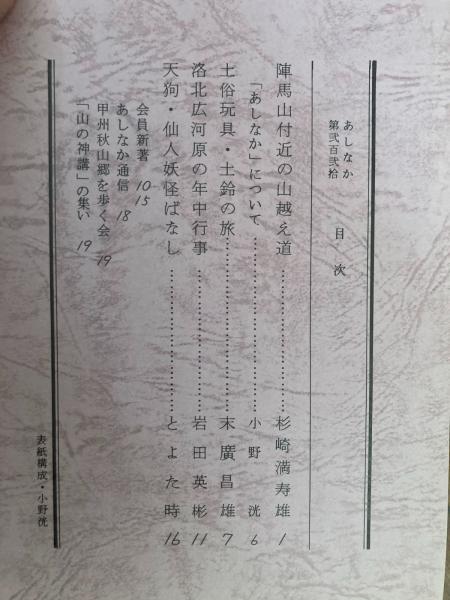 あしなか
第弐百弐拾
目次
陣馬山付近の山越え道……………………杉崎満寿雄 1
「あしなか」について……………………小野洸 6
土俗玩具・土鈴の旅……………………末廣昌雄 7
洛北広河原の年中行事……………………岩田英彬 11
天狗・仙人妖怪ばなし……………………とよた時 16
会員新著 10 15
あしなか通信 18
甲州秋山郷を歩く会 19
「山の神講」の集い 19
表紙構成・小野洸